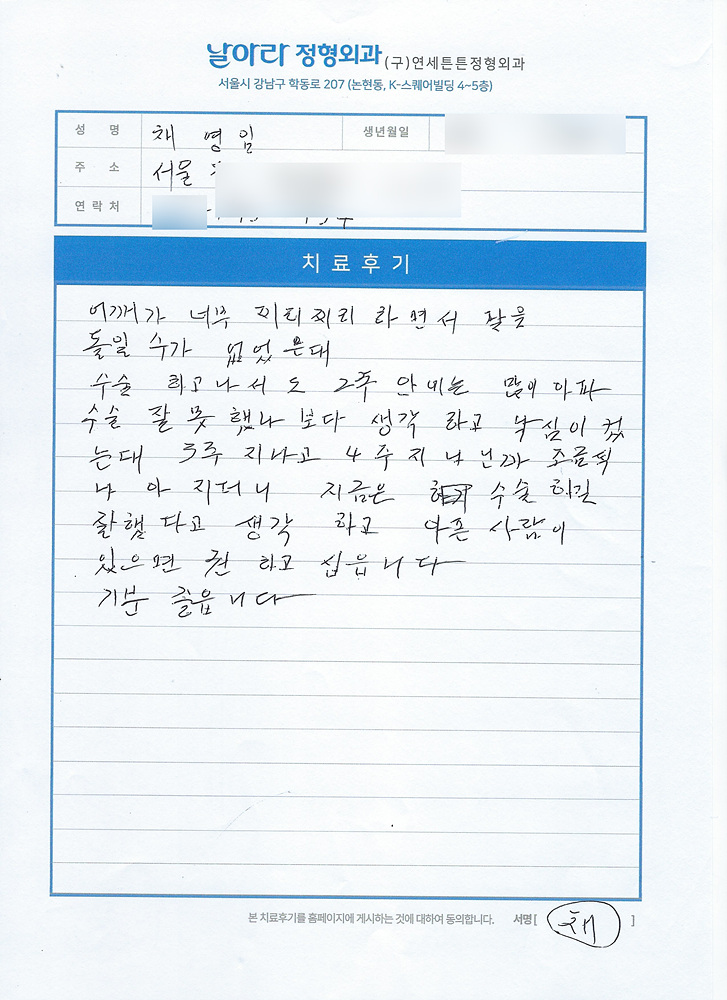 날아라 정형외과 (구)연세튼튼정형외과
서울시 강남구 학동로 207 (논현동, K-스퀘어빌딩 4~5층)
성 명 채 영 임 생년월일
주 소 서울
연 락 처
치 료 후 기
어깨가 너무 찌리찌리 라면서 팔을
돌일 수가 없었 은대
수술 하고 나서 도 2주 안에는 많이 아파
수술 잘 못 했나 보다 생각 하고 낙심이 컸
는대 3주 지나고 4주 지나닌까 조금씩
나 아 지더니 지금은 수술 하길
잘햄 다고 생각 하고 아픈 사람이
있으면 권 하고 십읍니다
기분 졸읍니다
본 치료후기를 홈페이지에 게시하는 것에 대하여 동의합니다. 서명 [ 채 ]